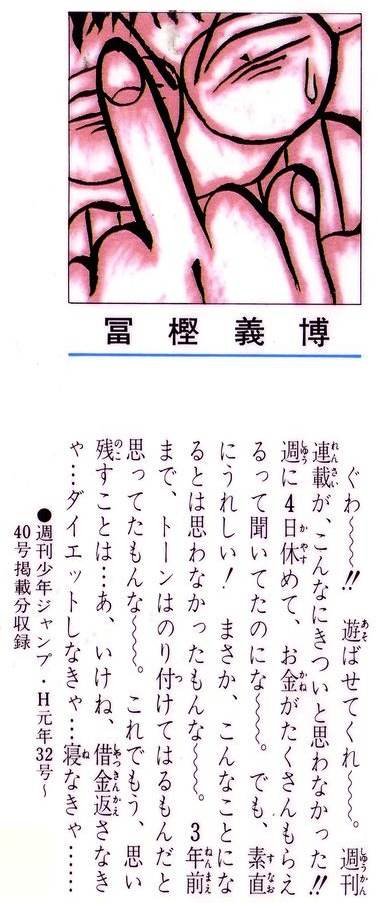 冨樫義博
ぐわ〜〜〜!!　遊ばせてくれ〜〜〜。週刊
連載が、こんなにきついと思わなかった!!
週に4日休めて、お金がたくさんもらえ
るって聞いてたのにな〜〜〜。でも、素直
にうれしい！　まさか、こんなことにな
るとは思わなかったもんな〜〜〜。3年前
まで、トーンはのり付けてはるもんだと
思ってたもんな〜〜〜。これでもう、思い
残すことは…あ、いけね、借金返さなき
ゃ…ダイエットしなきゃ…寝なきゃ……
●週刊少年ジャンプ・H元年32号〜
40号掲載分収録